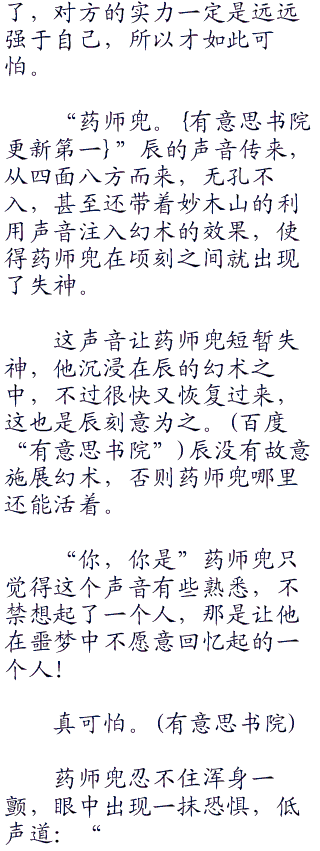 了，对方的实力一定是远远
强于自己，所以才如此可
怕。
“药师兜。{有意思书院
更新第一}”辰的声音传来，
从四面八方而来，无孔不
入，甚至还带着妙木山的利
用声音注入幻术的效果，使
得药师兜在顷刻之间就出现
了失神。
这声音让药师兜短暂失
神，他沉浸在辰的幻术之
中，不过很快又恢复过来，
这也是辰刻意为之。(百度
“有意思书院”)辰没有故意
施展幻术，否则药师兜哪里
还能活着。
“你，你是”药师兜只
觉得这个声音有些熟悉，不
禁想起了一个人，那是让他
在噩梦中不愿意回忆起的一
个人！
真可怕。(有意思书院)
药师兜忍不住浑身一
颤，眼中出现一抹恐惧，低
声道：“